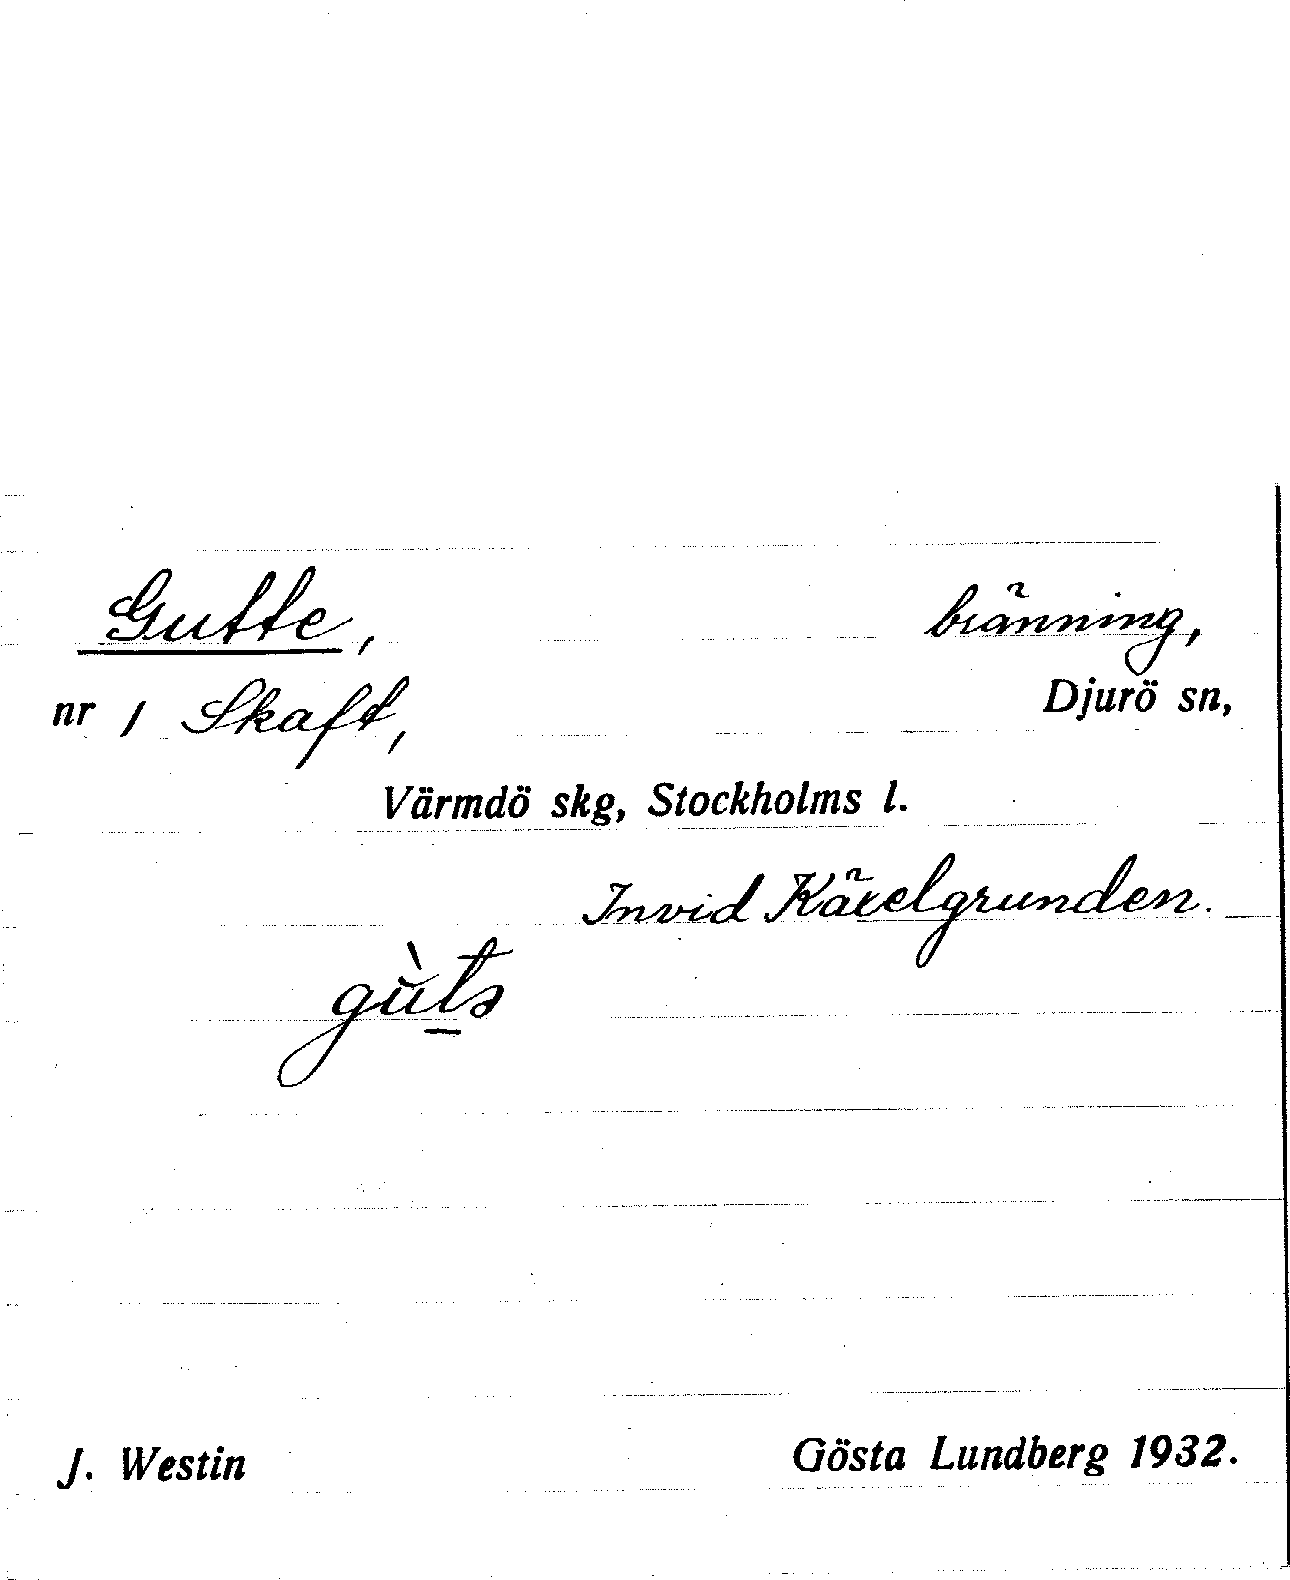 Gutte, bränning,
nr 1 Skaft, Djurö sn,
Värmdö skg, Stockholms l.
Invid Kärelgrunden.
gùtə
J. Westin Gösta Lundberg 1932.